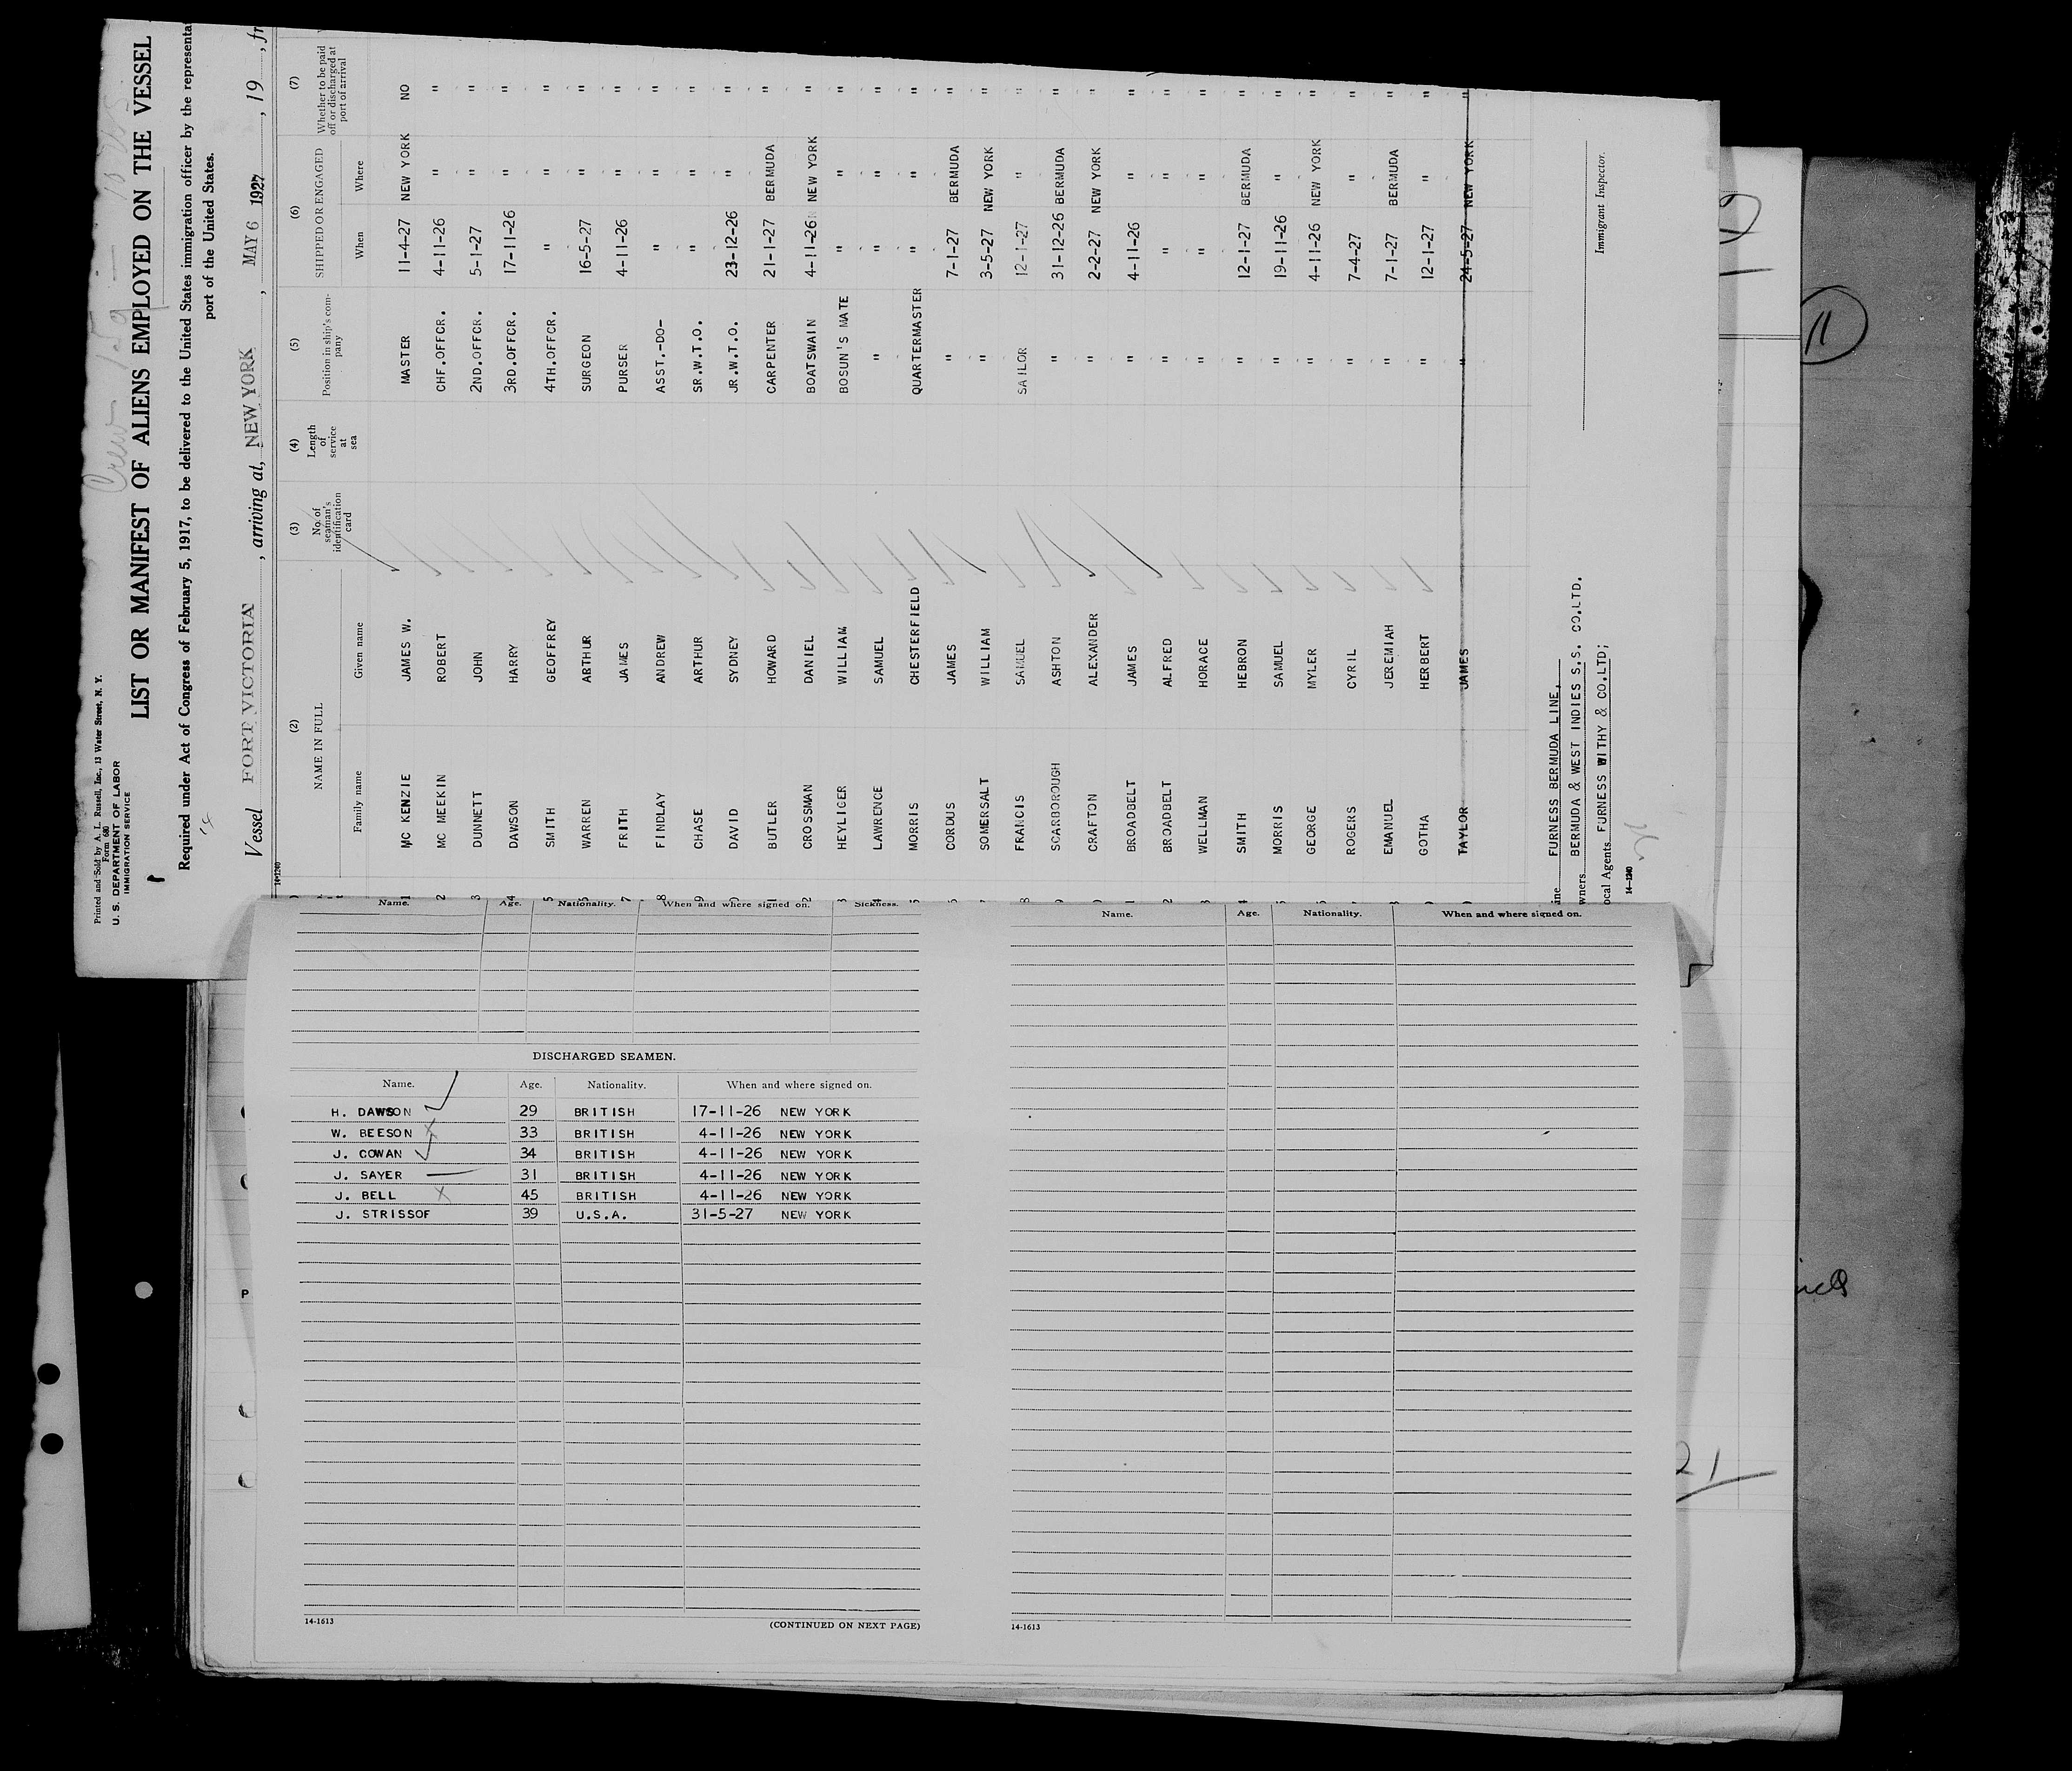 Crew 159
Printed and Sold by A. L. Russell, Inc., 13 Water Street, N. Y.
Form 680
U. S. DEPARTMENT OF LABOR
IMMIGRATION SERVICE
LIST OR MANIFEST OF ALIENS EMPLOYED ON THE VESSEL
Required under Act of Congress of February 5, 1917, to be delivered to the United States immigration officer by the representa
port of the United States.
Vessel FORT VICTORIA, arriving at, NEW YORK, MAY 6 1927, 19 , fr
14-1240
(2) (3) (4) (5) (6) (7)
NAME IN FULL No. of seaman's identification card Length of service at sea Position in ship's company SHIPPED OR ENGAGED Whether to be paid off or discharged at port of arrival
Family name Given name When Where
1 MC KENZIE JAMES W. MASTER 11-4-27 NEW YORK NO
2 MC MEEKIN ROBERT CHF.OFFCR. 4-11-26 " "
3 DUNNETT JOHN 2ND.OFFCR. 5-1-27 " "
4 DAWSON HARRY 3RD.OFFCR. 17-11-26 " "
5 SMITH GEOFFREY 4TH.OFFCR. " " "
6 WARREN ARTHUR SURGEON 16-5-27 " "
7 FRITH JAMES PURSER 4-11-26 " "
8 FINDLAY ANDREW ASST.-DO- " " "
9 CHASE ARTHUR SR.W.T.O. " " "
0 DAVID SYDNEY JR.W.T.O. 23-12-26 " "
1 BUTLER HOWARD CARPENTER 21-1-27 BERMUDA "
2 CROSSMAN DANIEL BOATSWAIN 4-11-26 NEW YORK "
3 HEYLIGER WILLIAM BOSUN'S MATE " " "
4 LAWRENCE SAMUEL " " " "
5 MORRIS CHESTERFIELD QUARTERMASTER " " "
6 CORDUS JAMES " 7-1-27 BERMUDA "
7 SOMERSALT WILLIAM " 3-5-27 NEW YORK "
8 FRANCIS SAMUEL SAILOR 12-1-27 " "
9 SCARBOROUGH ASHTON " 31-12-26 BERMUDA "
0 CRAFTON ALEXANDER " 2-2-27 NEW YORK "
1 BROADBELT JAMES " 4-11-26 " "
2 BROADBELT ALFRED " " " "
3 WELLMAN HORACE " " " "
4 SMITH HEBRON " 12-1-27 BERMUDA "
5 MORRIS SAMUEL " 19-11-26 " "
6 GEORGE MYLER " 4-11-26 NEW YORK "
7 ROGERS CYRIL " 7-4-27 " "
8 EMANUEL JEREMIAH " 7-1-27 BERMUDA "
9 GOTHA HERBERT " 12-1-27 " "
0 TAYLOR JAMES " 24-5-27 NEW YORK "
ine FURNESS BERMUDA LINE,
wners BERMUDA & WEST INDIES S.S. CO.LTD.
ocal Agents FURNESS WITHY & CO.LTD;
Immigrant Inspector.
14-1240
Name. Age. Nationality. When and where signed on. Sickness.
DISCHARGED SEAMEN.
Name. Age. Nationality. When and where signed on.
H. DAWSON 29 BRITISH 17-11-26 NEW YORK
W. BEESON 33 BRITISH 4-11-26 NEW YORK
J. COWAN 34 BRITISH 4-11-26 NEW YORK
J. SAYER 31 BRITISH 4-11-26 NEW YORK
J. BELL 45 BRITISH 4-11-26 NEW YORK
J. STRISSOF 39 U.S.A. 31-5-27 NEW YORK
14-1613
(CONTINUED ON NEXT PAGE)
Name. Age. Nationality. When and where signed on.
14-1613
11
21
P